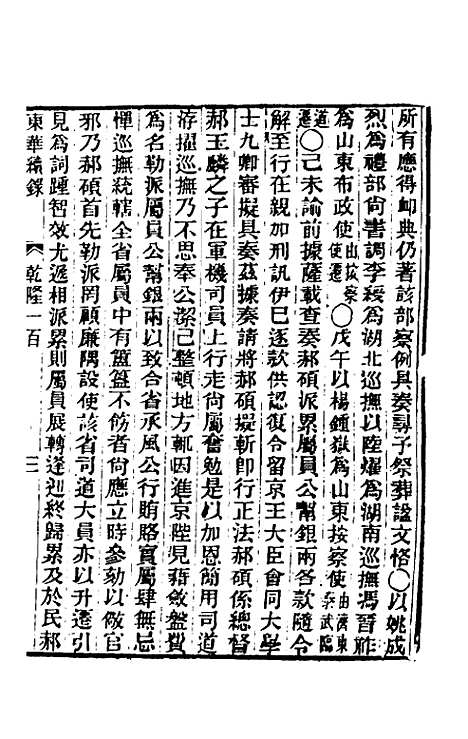 所有應得卹典仍著該部察例具奏尋予祭葬諡文恪〇以姚成
烈為禮部尚書調李綬為湖北巡撫以陸燿為湖南巡撫馮晉祚
為山東布政使由按察使遷〇戊午以楊鍾嶽為山東按察使由濟東泰武臨
道遷〇己未諭前據薩載查奏郝碩派累屬員公幫銀兩各款隨令
解至行在親加刑訊伊已逐款供認復令留京王大臣會同大學
士九卿審擬具奏茲據奏請將郝碩擬斬即行正法郝碩係總督
郝玉麟之子在軍機司員上行走尚屬奮勉是以加恩簡用司道
洊擢巡撫乃不思奉公潔己整頓地方輒因進京陛見藉斂盤費
為名勒派屬員公幫銀兩以致合省承風公行賄賂實屬肆無忌
憚巡撫統轄全省屬員中有簠簋不飭者尚應立時參劾以儆官
邪乃郝碩首先勒派罔顧廉隅設使該省司道大員亦以升遷引
見為詞踵智效尤遞相派累則屬員展轉逢迎終歸累及於民郝
東華續錄 乾隆一百 三